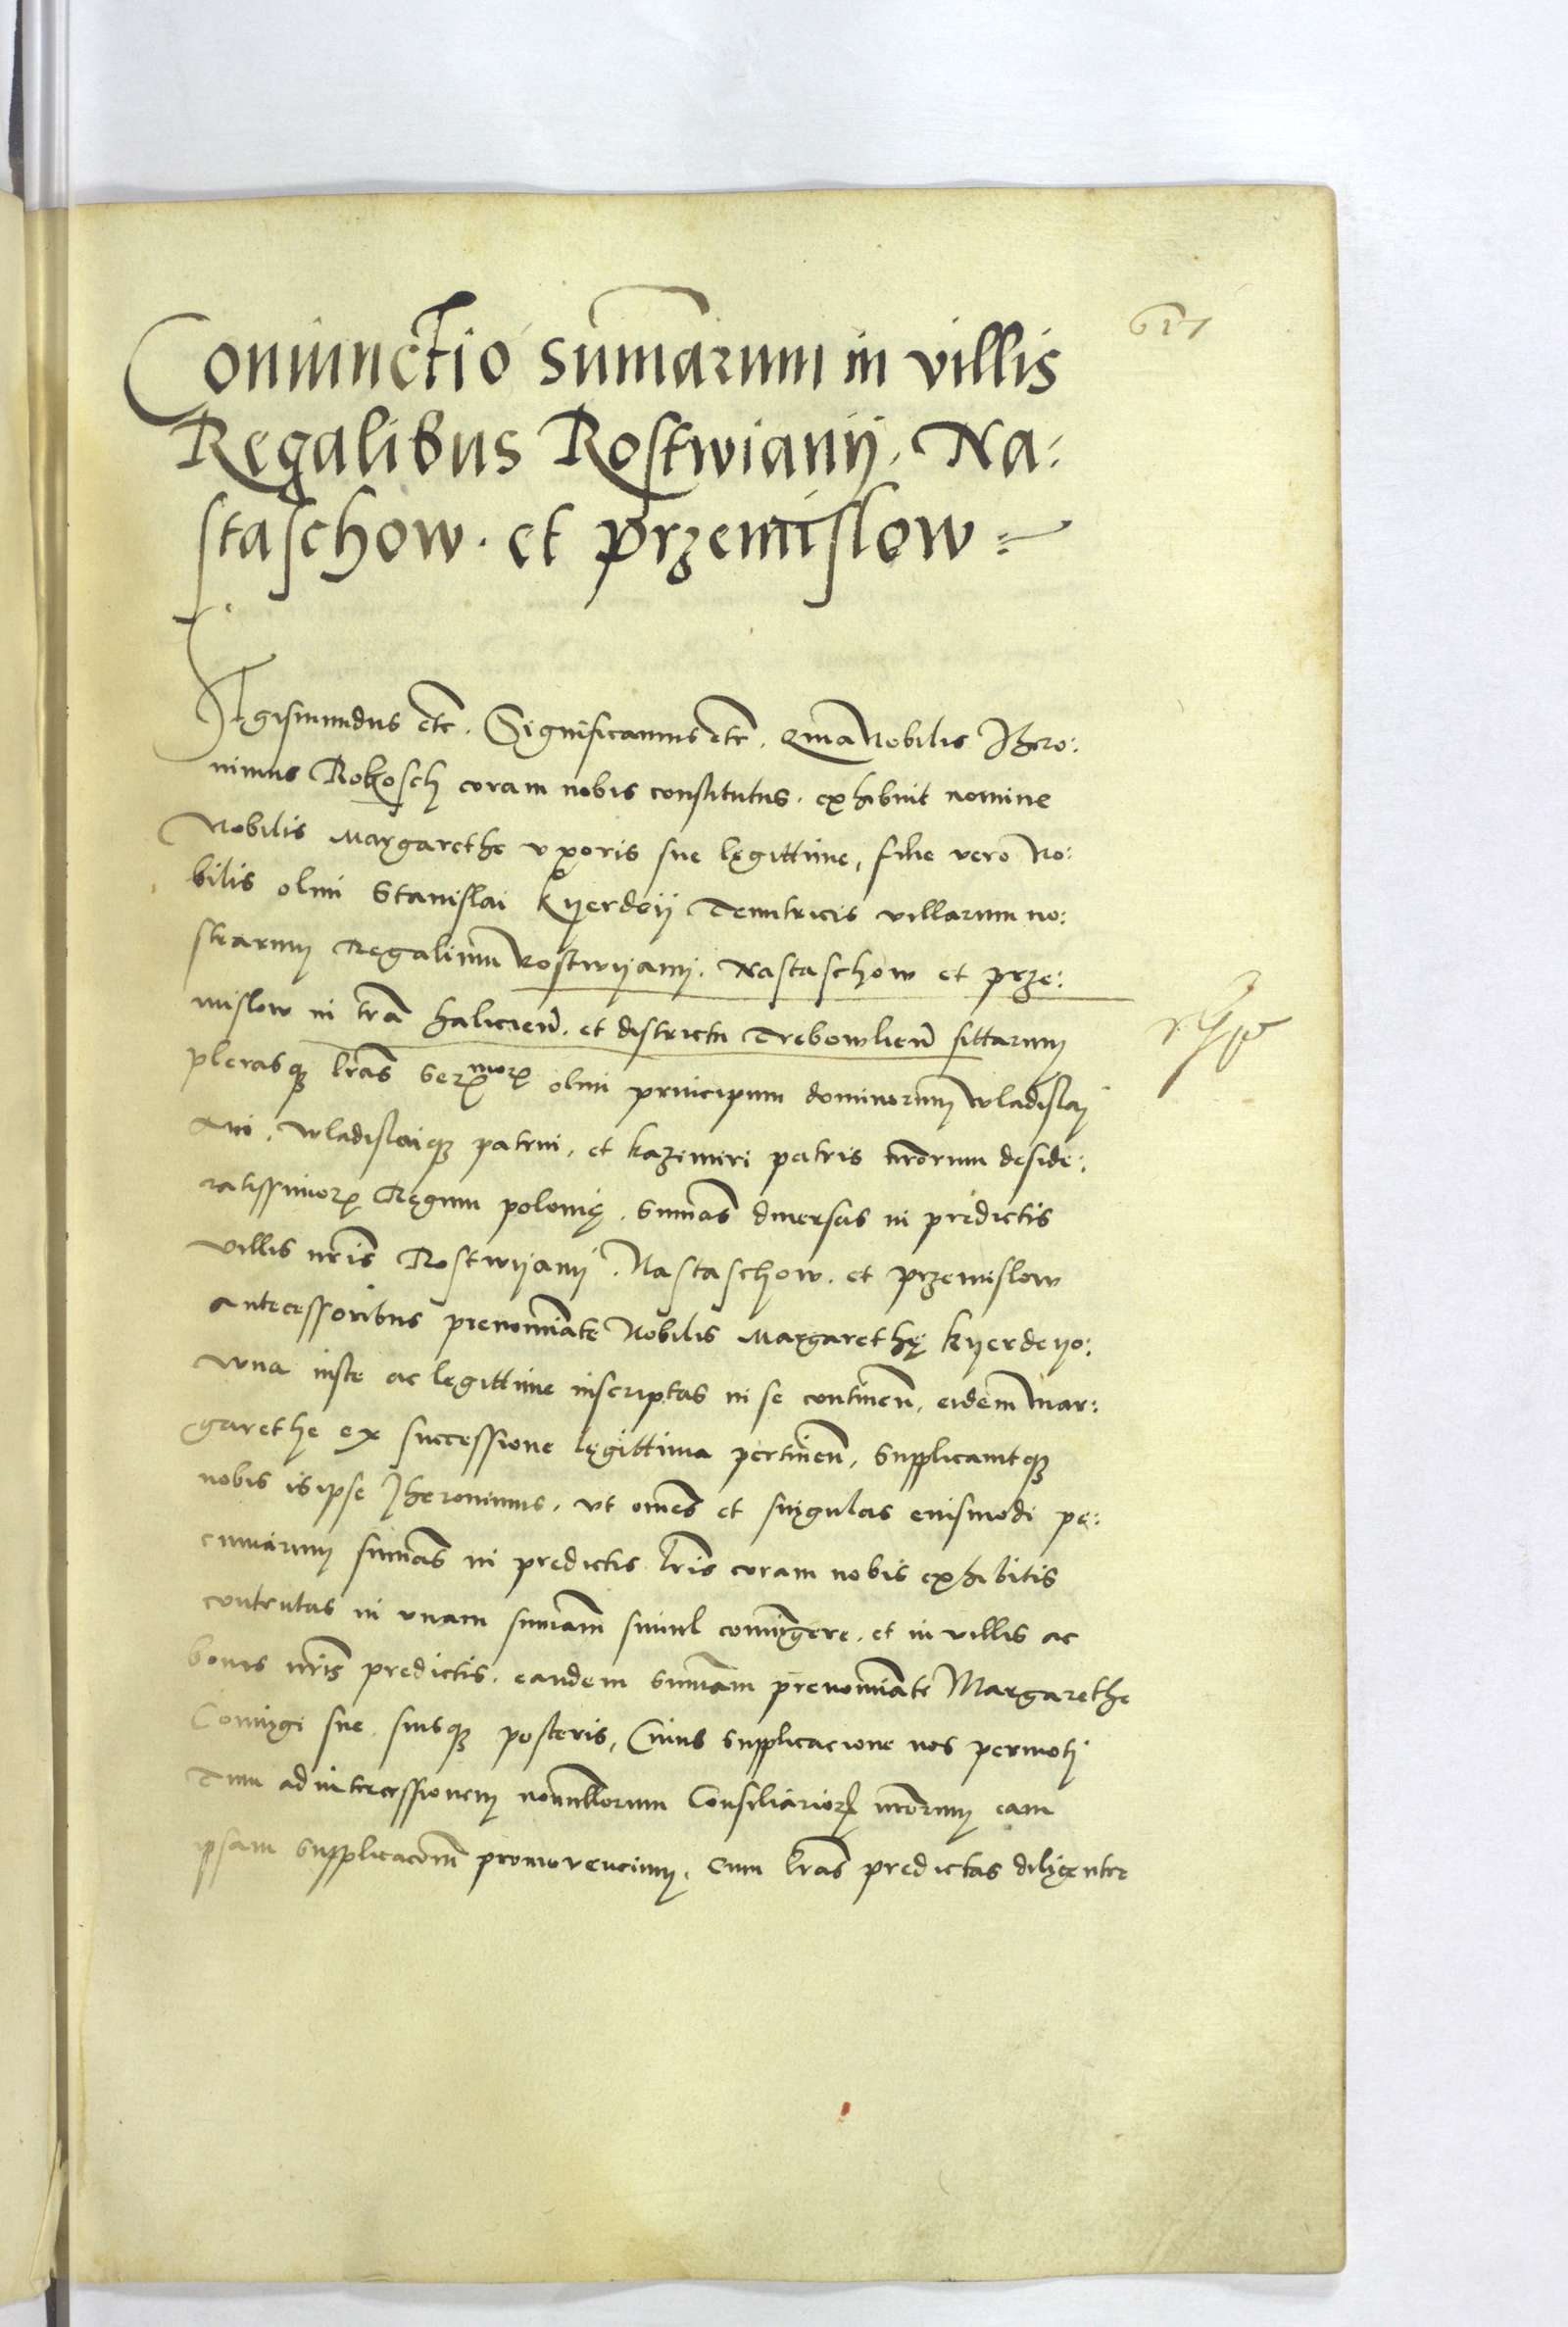 Coniunctio summarum in villis
Regalibus Rostwianij. Na:
staschow. et przemislow
617
Sigismundus etc. Significamus etc. quia Nobilis Ihero:
nimus Rokosch coram nobis constitutus. exhibuit nomine
Nobilis Margarethe vxoris sue legittime, filie vero No:
bilis olim Stanislai Kyerdeij Tenutricis villarum no:
strarum Regalium Rostwyanij. Nastaschow et prze:
mislow in tra halicien. et districtu Trebowlien sittarum
plerasq lras Sermor olim principum dominorum wladislaj
Aui. wladislaiq patrui. et kazimiri patris nrorum deside:
ratissimor Regum polonię. Sumas diuersas in predictis
villis nris Rostwyanij. Nastaschow. et przemislow
antecessoribus prenomiate Nobilis Margarethę kyerdeyo:
wna iuste ac legittime inscriptas in se continen. eidem Mar:
garethe ex successione legittima pertinen. Supplicauitq
nobis is ipse Iheronimus. vt omes et singulas eiusmodi pe:
cuniarum sumas in predictis lris coram nobis exhibitis
contentas in vnam sumam simul coniungere. et in villis ac
bonis nris predictis. eandem Sumam prenomiate Margarethe
Coniugi sue. suisq posteris, Cuius supplicacione nos permotj
Tum ad intercessionem nonnullorum Consiliarior nrorum eam
ipsam supplicacoem promovencium. cum lras predictas diligenter